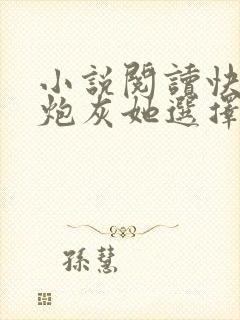 小說閱讀快
炮灰她選擇
孫慧